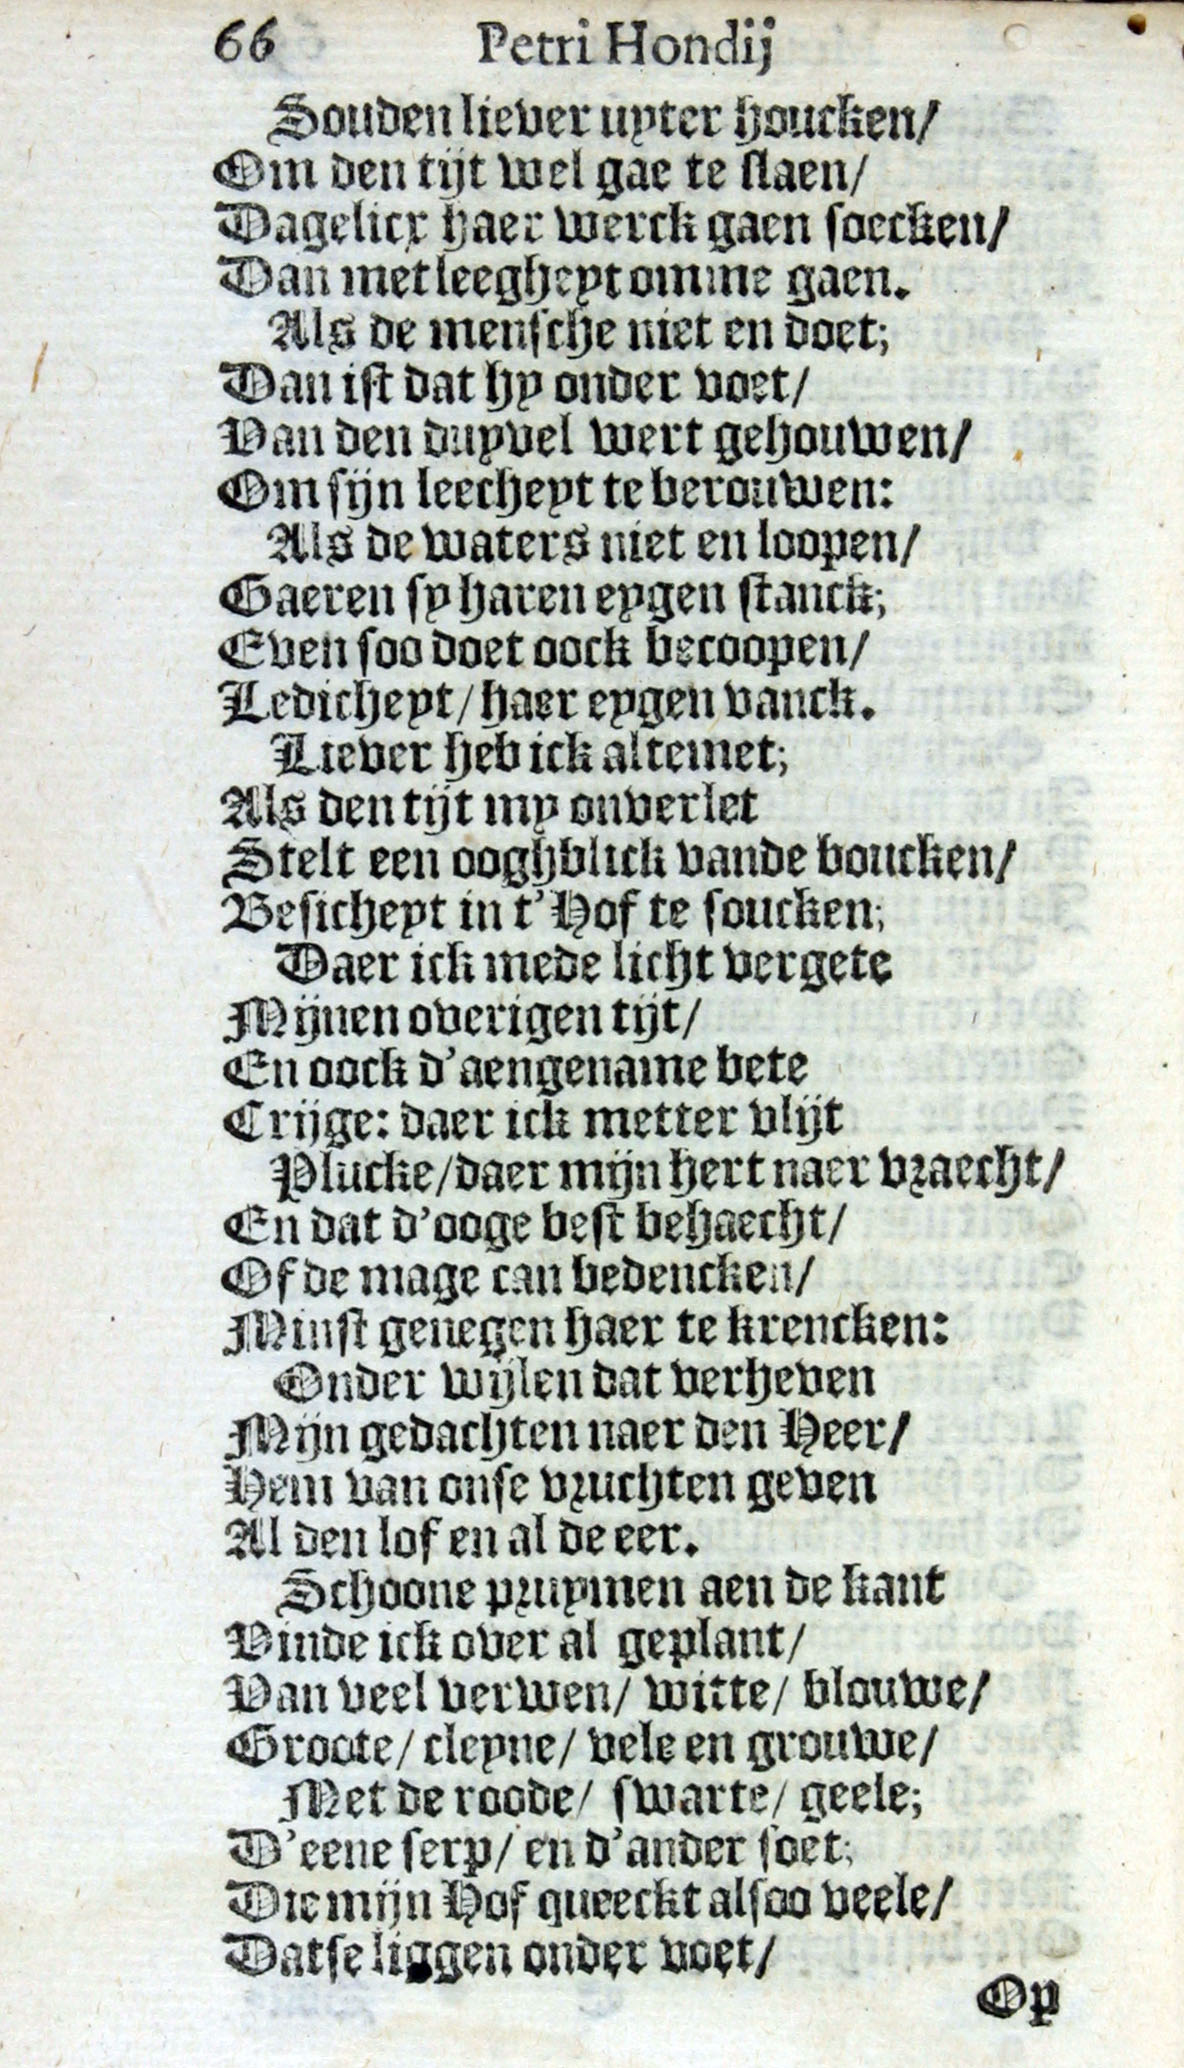 66 Petri Hondij
Souden liever uyter houcken/
Om den tijt wel gae te slaen/
Dagelicx haer werck gaen soecken/
Dan met leegheyt omme gaen.
Als de mensche niet en doet;
Dan ist dat hy onder voet/
Van den duyvel wert gehouwen/
Om sijn leecheyt te berouwen:
Als de waters niet en loopen/
Gaeren sy haren eygen stanck;
Even soo doet oock becoopen/
Ledicheyt/ haer eygen vanck.
Liever heb ick altemet;
Als den tijt my onverlet
Stelt een ooghblick vande boucken/
Besicheyt in t'Hof te soucken;
Daer ick mede licht vergete
Mijnen overigen tijt/
En oock d'aengename bete
Crijge: daer ick metter vlijt
Plucke/daer mijn hert naer vraecht/
En dat d'ooge best behaecht/
Of de mage can bedencken/
Minst genegen haer te krencken:
Onder wijlen dat verheven
Mijn gedachten naer den Heer/
Hem van onse vruchten geven
Al den lof en al de eer.
Schoone pruymen aen de kant
Vinde ick over al geplant/
Van veel verwen/ witte/ blouwe/
Groote/ cleyne/ vele en grouwe/
Met de roode/ swarte/ geele;
D'eene serp/ en d'ander soet;
Die mijn Hof queeckt alsoo veele/
Datse liggen onder voet/
Op